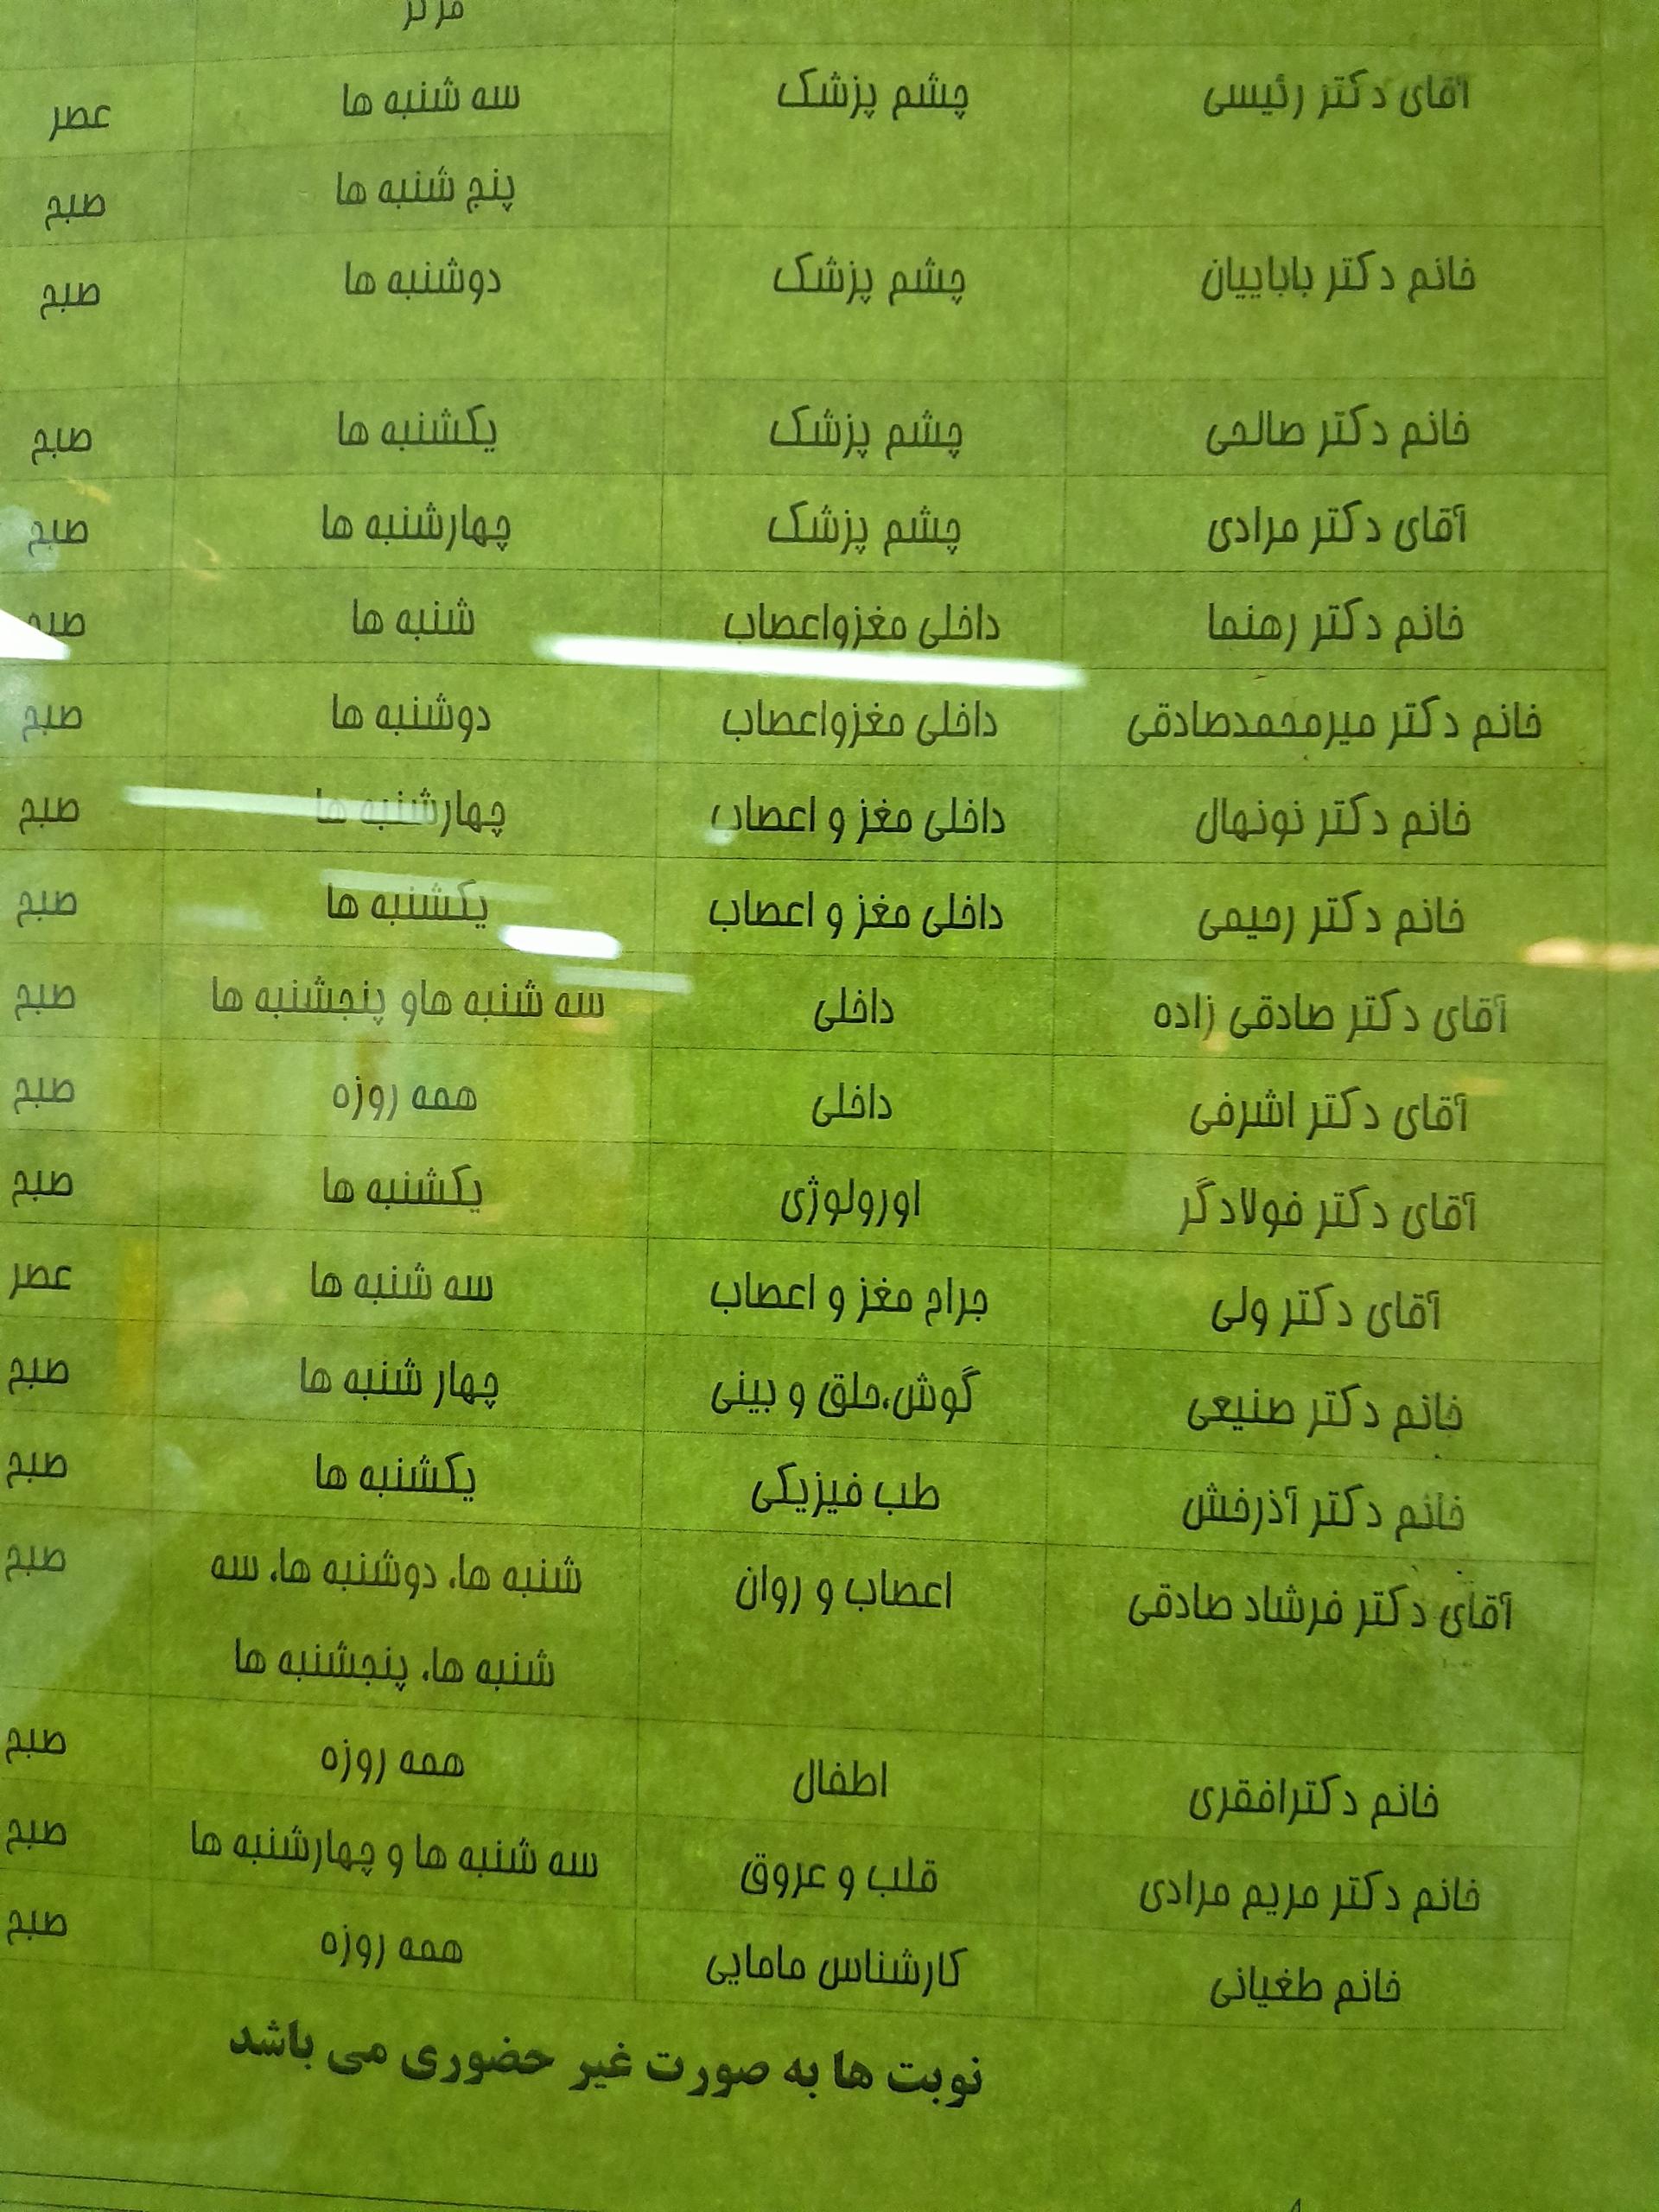 مرکز
آقای دکتر رئیسی چشم پزشک سه شنبه ها عصر
پنج شنبه ها صبح
خانم دکتر باباییان چشم پزشک دوشنبه ها صبح
خانم دکتر صالحی چشم پزشک یکشنبه ها صبح
آقای دکتر مرادی چشم پزشک چهارشنبه ها صبح
خانم دکتر رهنما داخلی مغزواعصاب شنبه ها صبح
خانم دکتر میرمحمدصادقی داخلی مغزواعصاب دوشنبه ها صبح
خانم دکتر نونهال داخلی مغز و اعصاب چهارشنبه ها صبح
خانم دکتر رحیمی داخلی مغز و اعصاب یکشنبه ها صبح
آقای دکتر صادقی زاده داخلی سه شنبه هاو پنجشنبه ها صبح
آقای دکتر اشرفی داخلی همه روزه صبح
آقای دکتر فولادگر اورولوژی یکشنبه ها صبح
آقای دکتر ولی جراح مغز و اعصاب سه شنبه ها عصر
خانم دکتر صنیعی گوش،حلق و بینی چهار شنبه ها صبح
خانم دکتر آذرخش طب فیزیکی یکشنبه ها صبح
آقای دکتر فرشاد صادقی اعصاب و روان شنبه ها، دوشنبه ها، سه صبح
شنبه ها، پنجشنبه ها
خانم دکترافقری اطفال همه روزه صبح
خانم دکتر مریم مرادی قلب و عروق سه شنبه ها و چهارشنبه ها صبح
خانم طغیانی کارشناس مامایی همه روزه صبح
نوبت ها به صورت غیر حضوری می باشد